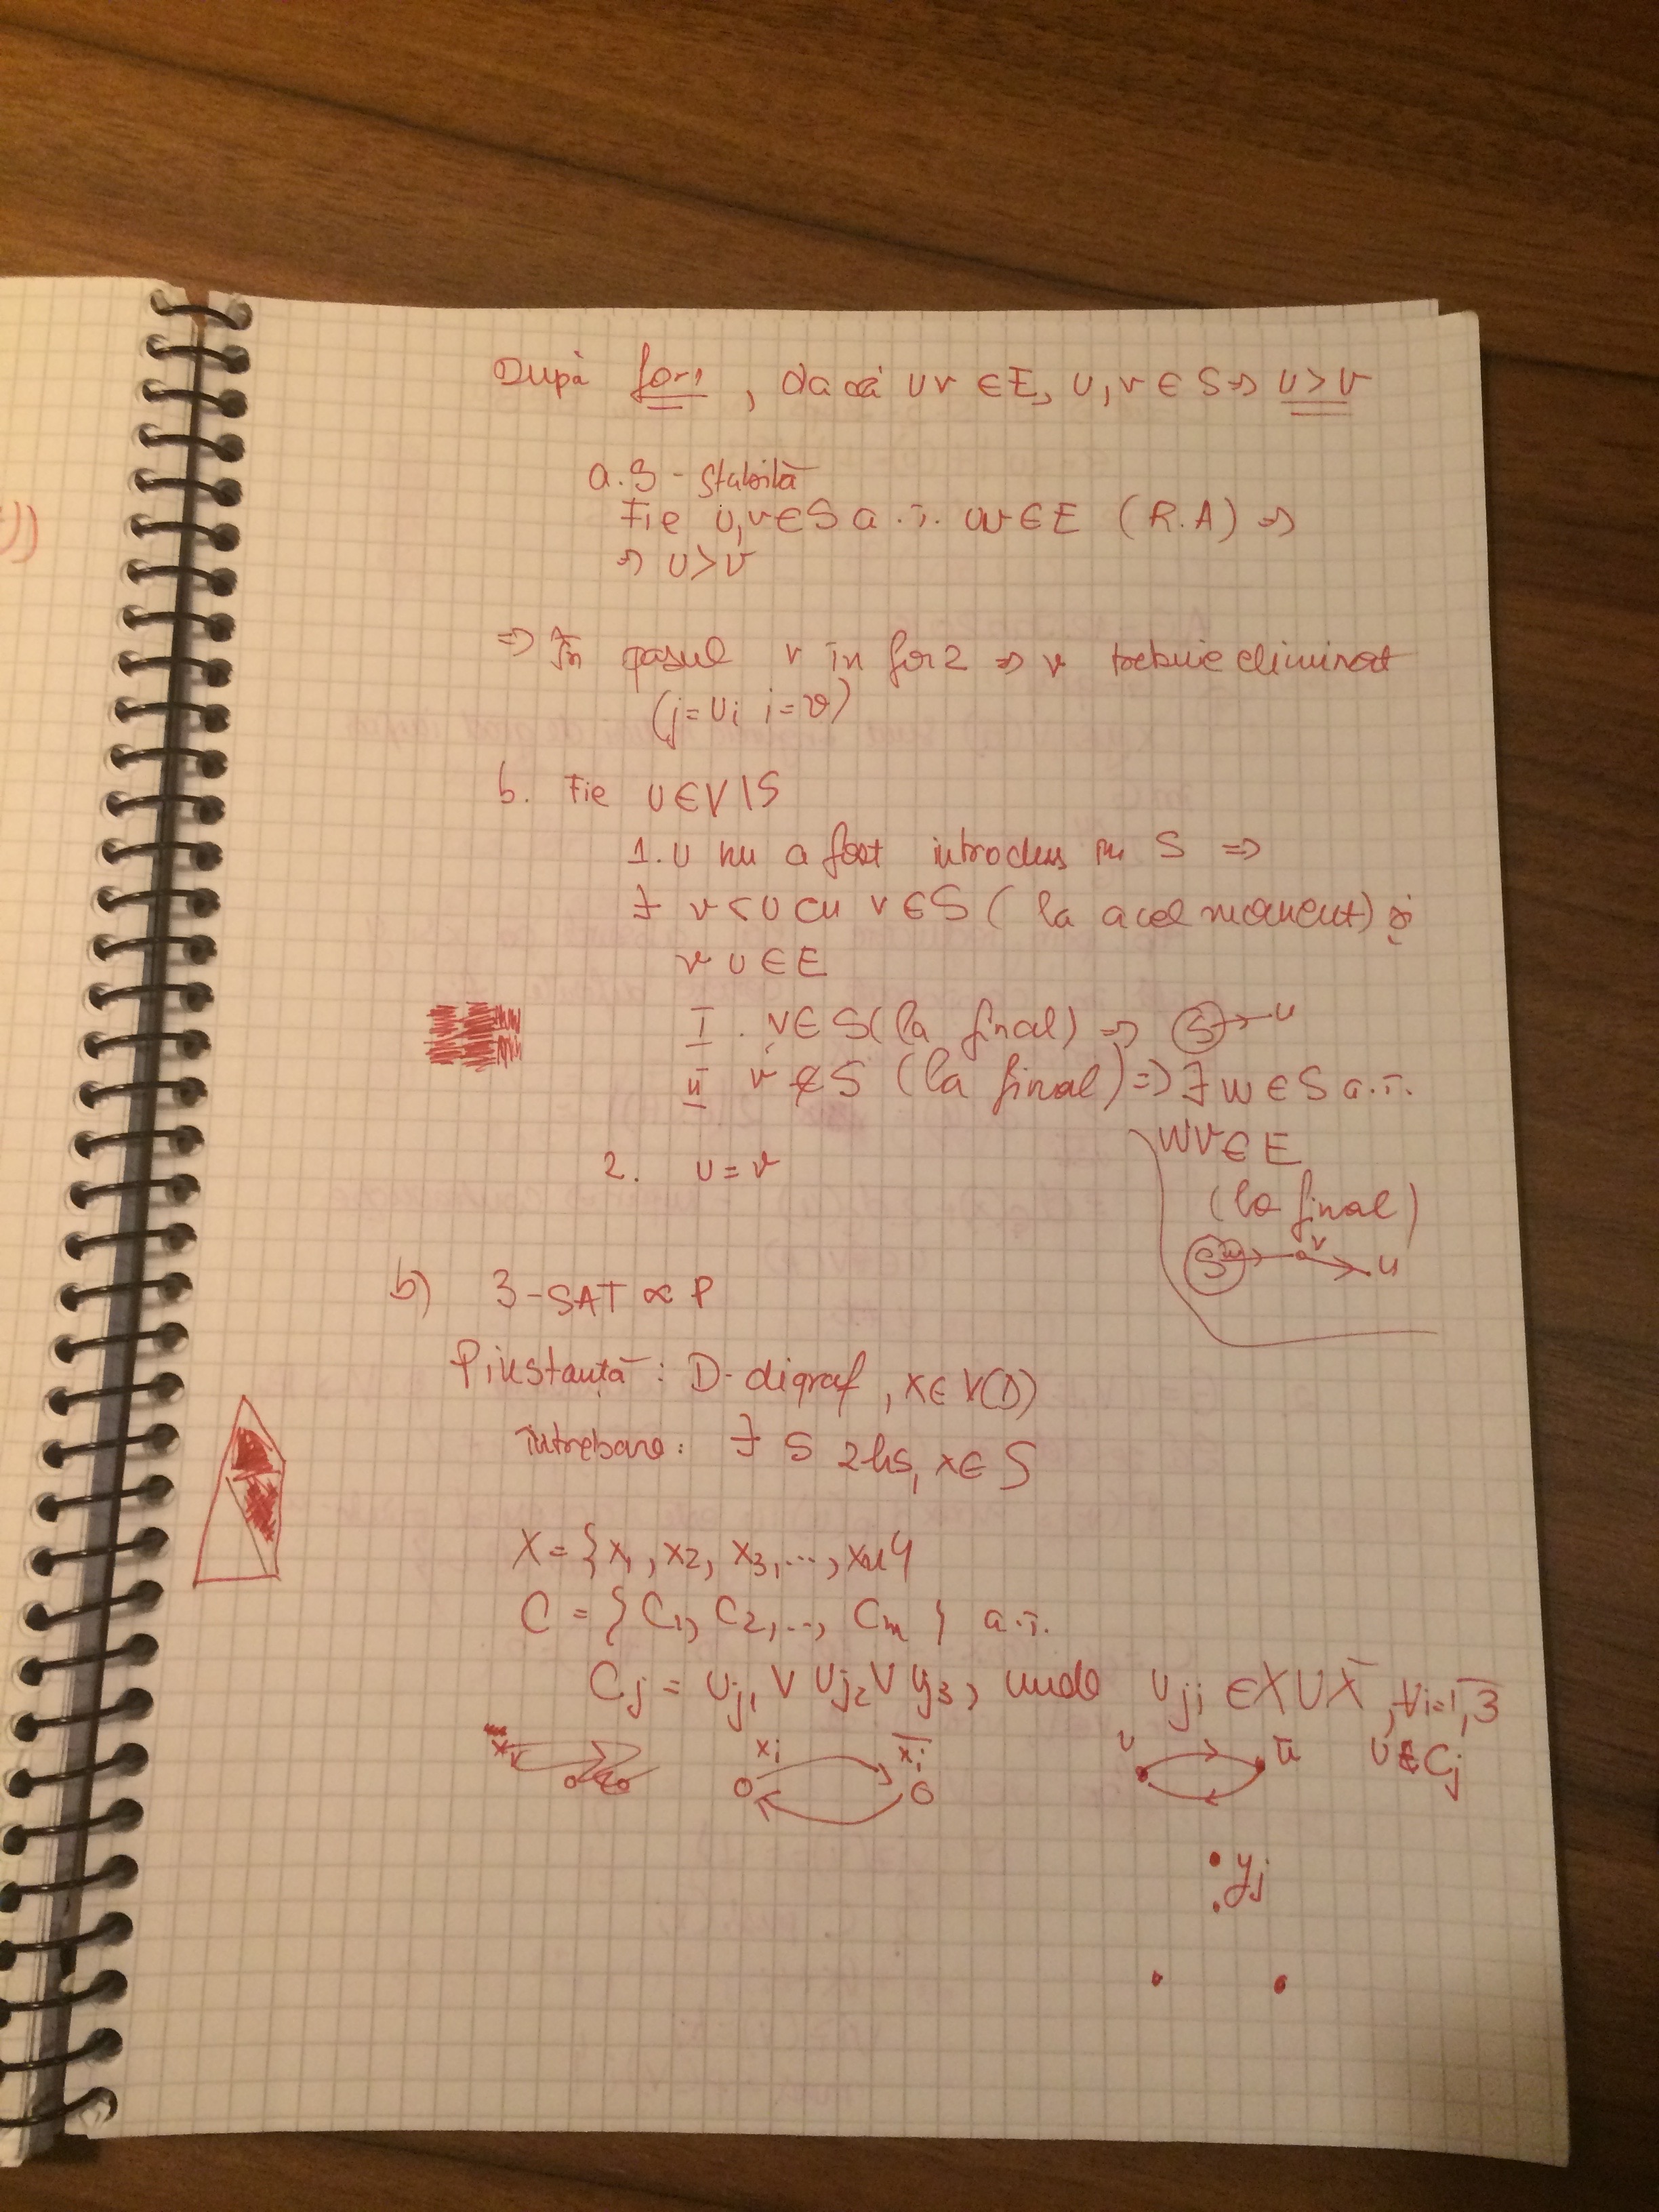 După for1, dacă uv ∈ E, u,v ∈ S ⇒ u > v
a. S - stabilă
Fie u,v ∈ S a.î. uv ∈ E (R.A) ⇒
⇒ u > v
⇒ În pasul v în for2 ⇒ v trebuie eliminat
(j = u, i = v)
b. Fie u ∈ V \ S
1. u nu a fost introdus în S ⇒
∃ v < u cu v ∈ S (la acel moment) și
vu ∈ E
I. v ∈ S (la final) ⇒ S → u
II v ∉ S (la final) ⇒ ∃ w ∈ S a.î.
wv ∈ E
(la final)
2. u = v
S w → v → u
b) 3-SAT ∝ P
P instanță: D-digraf, x ∈ V(D)
întrebare: ∃ S 2hs, x ∈ S
X = {x1, x2, x3, ..., xn}
C = {C1, C2, ..., Cm} a.î.
Cj = uj1 ∨ uj2 ∨ uj3, unde uji ∈ X ∪ X̄, ∀i=1,3
xi x̄i u ū u ∉ Cj
yj